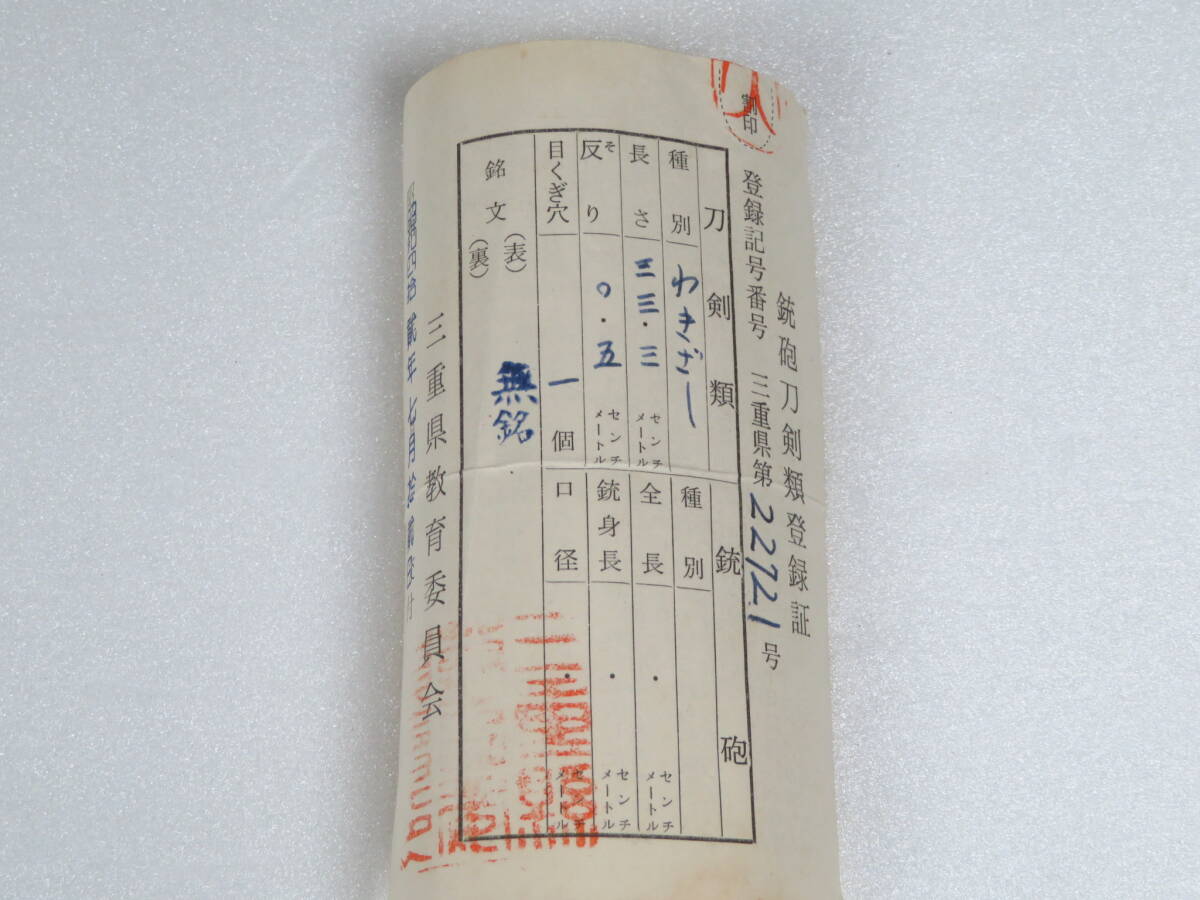 割印
銃砲刀剣類登録証
登録記号番号 三重県第22721号
刀剣類
種別 わきざし
長さ 三三・三 センチメートル
反り そ 〇・五 センチメートル
目くぎ穴 一個
銘文 (表) 無銘
(裏)
銃砲
種別
全長 ・ センチメートル
銃身長 ・ センチメートル
口径 ・ センチメートル
貳年七月拾
三重県教育委員会